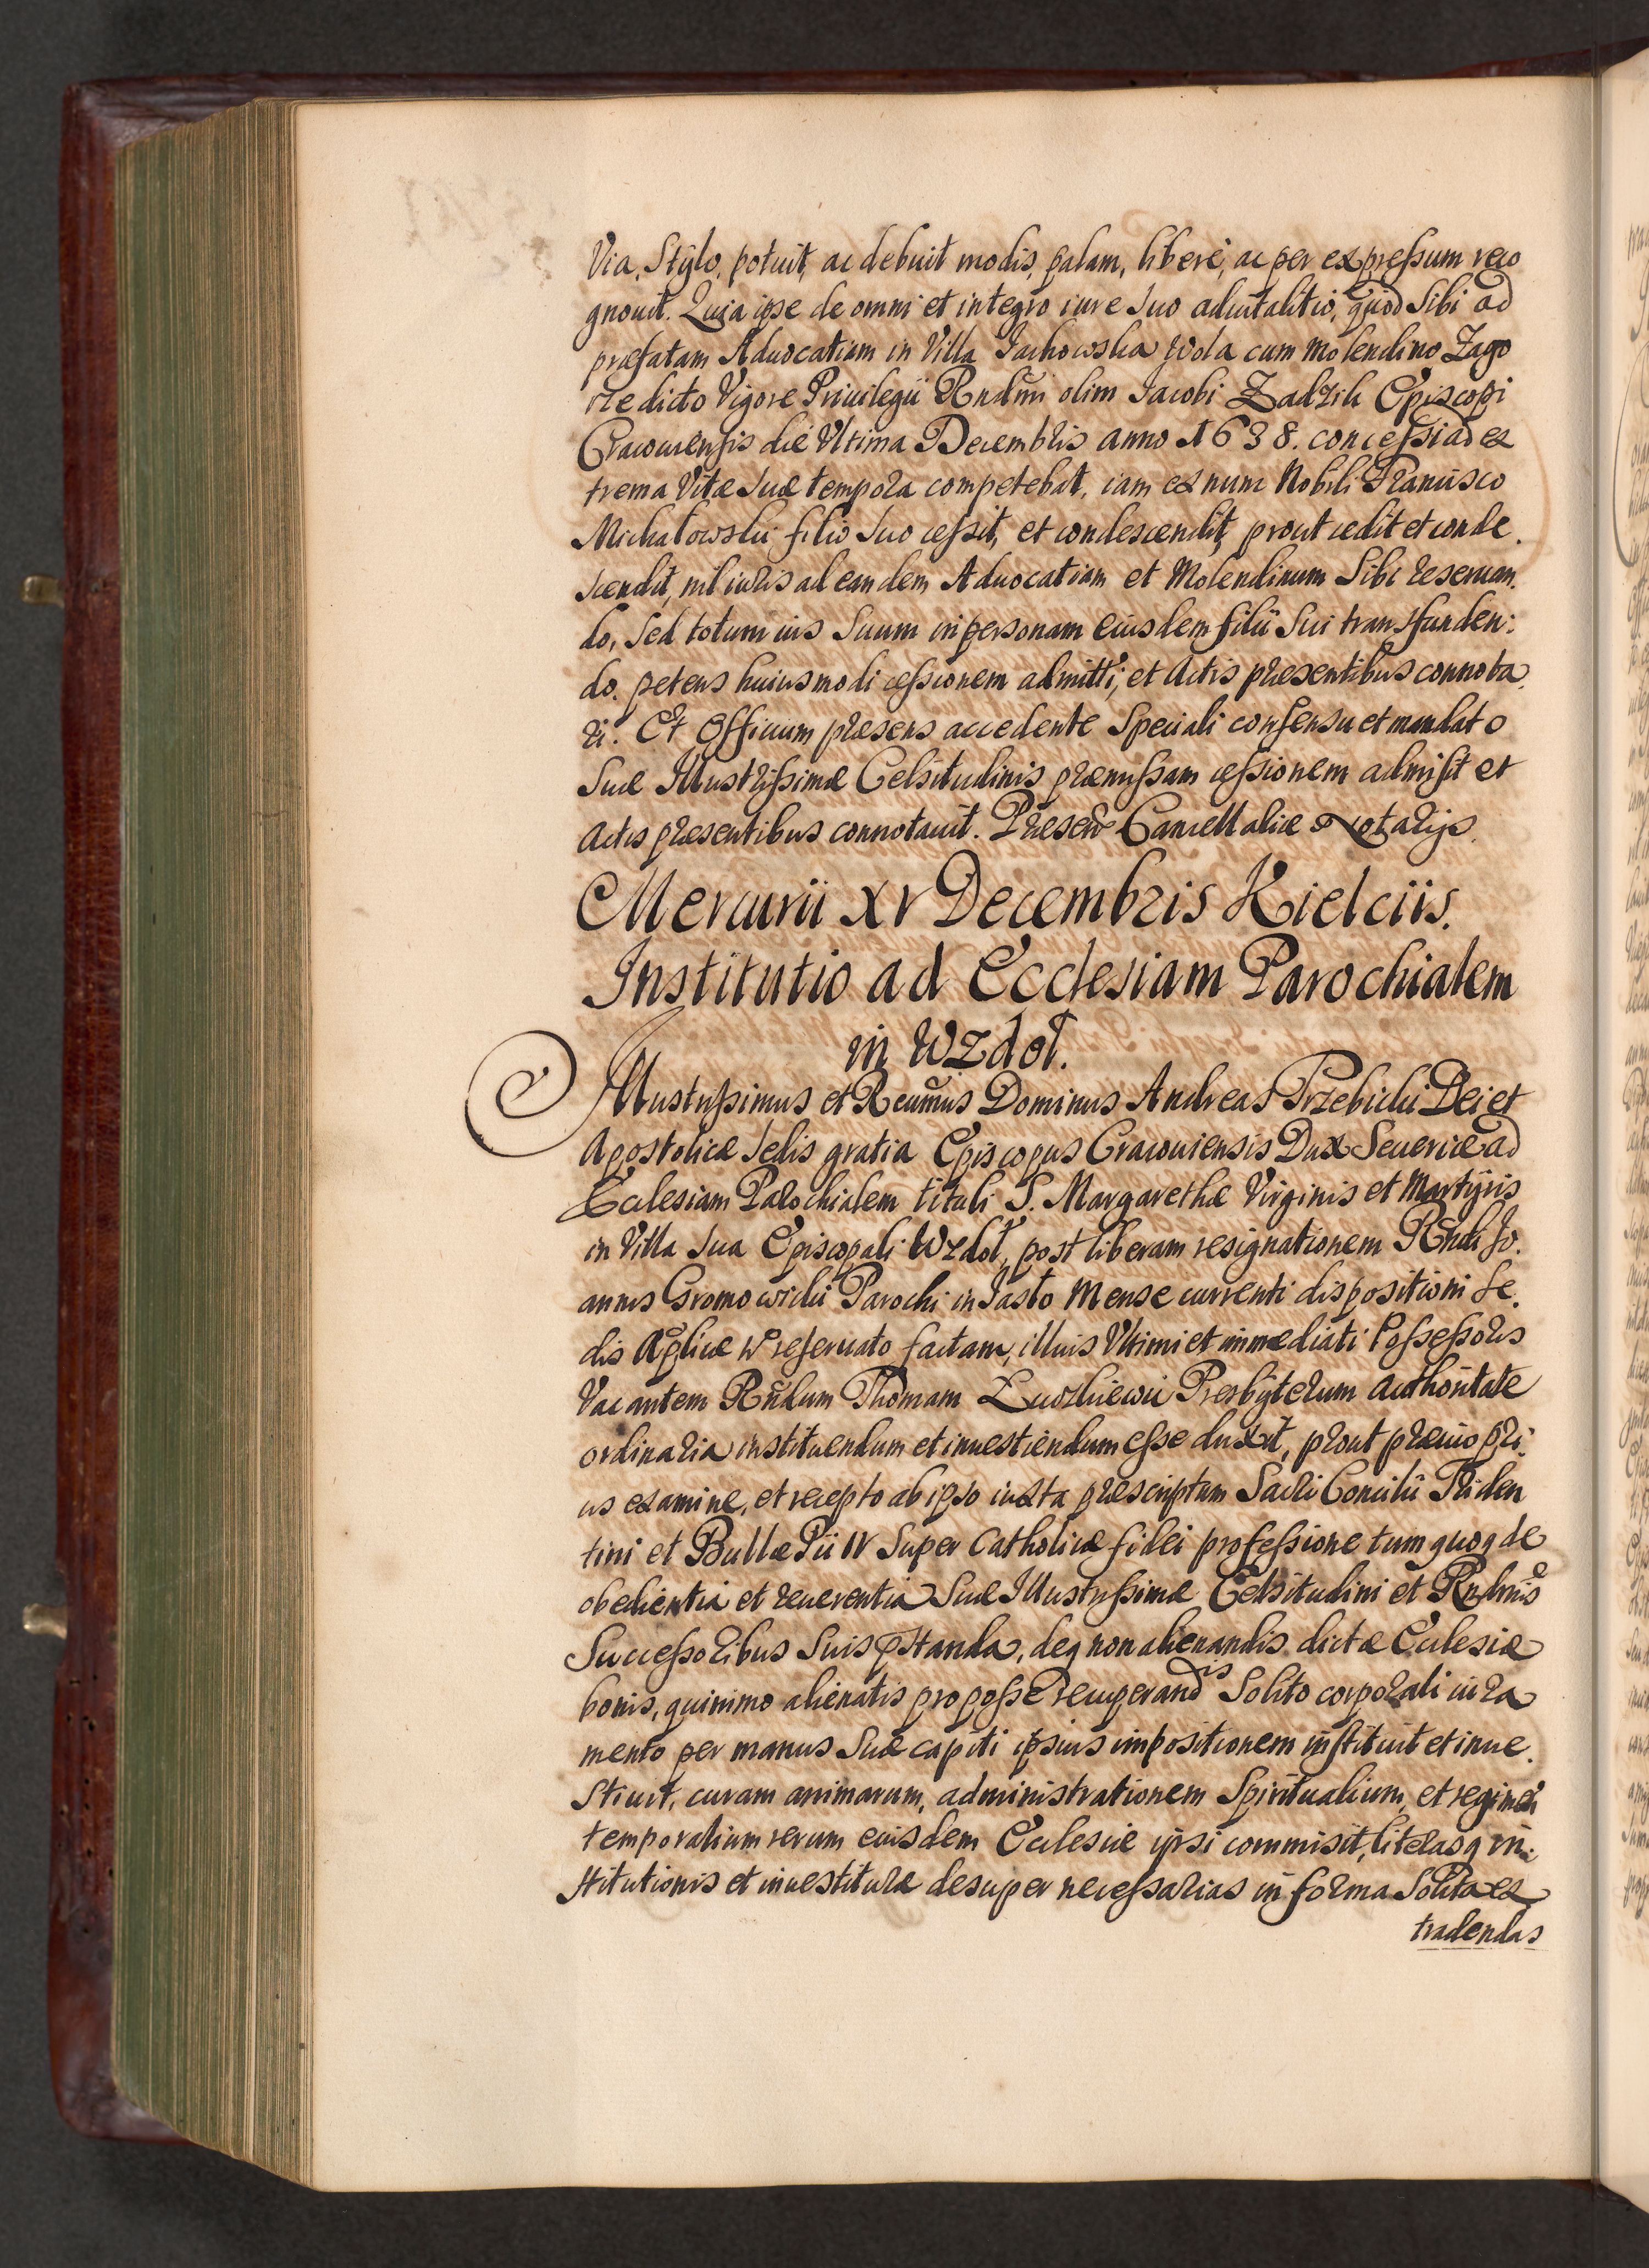 Via, Stylo, potuit, ac debuit modis, palam, liberè, ac per expressum reco
gnouit. Quia ipse de omni et integro iure suo aduitalitio, quod sibi ad
præfatam Aduocatiam in Villa Jachowska Wola cum molendino Zago
rze dicto Vigore Priuilegii Rndmi olim Jacobi Zadzik Episcopi
Cracouiensis die Vltima Decembris anno 1638. concessi ad ex
trema Vitæ suæ tempora competebat, iam ex nunc Nobili Francisco
Michałowski filio suo cessit, et condescendit, prout cedit et conde.
scendit, nil iuris ad eandem Aduocatiam et Molendinum sibi reseruan.
do, sed totum ius suum in personam eiusdem filii sui transfunden:
do. petens huiusmodi cessionem admitti, et Actis præsentibus connota.
ri. Et Officium præsens accedente speciali consensu et mandato
Suæ Illustrissimæ Celsitudinis præmissam cessionem admisit et
Actis præsentibus connotauit. Præsen Cancellariæ Notarijs.
Mercurii XV Decembris Kielciis.
Institutio ad Ecclesiam Parochialem
in Wzdoł.
Illustrissimus et Reumus Dominus Andreas Trzebicki Dei et
Apostolicæ Sedis gratia Episcopus Cracouiensis Dux Seueriæ ad
Ecclesiam Parochialem tituli S. Margarethæ Virginis et Martyris
in Villa sua Episcopali Wzdoł, post liberam resignationem Rndi Jo.
annis Gromowicki Parochi in Jasło Mense currenti dispositioni se.
dis Aplicæ no reseruato factam, illius Vltimi et immediati Possessoris
Vacantem Rndum Thomam Presbyterum authoritate
ordinaria instituendum et inuestiendum esse duxit, prout præuio pri.
us examine, et recepto ab ipso iuxta præscriptum Sacri Concilii Triden
tini et Bullæ Pii IV super Catholicæ fidei professione tum quoq de
obedientia et reuerentia Suæ Illustrissimæ Celsitudini et Rndmis
Successoribus suis pstanda, deq non alienandis dictæ Ecclesiæ
bonis, quinimo alienatis pro posse recuperandis solito corporali iura
mento per manus suæ capiti ipsius impositionem instituit et inue.
stiuit, curam animarum, administrationem spiritualium, et regimen
temporalium rerum eiusdem Ecclesiæ ipsi commisit, literasq in.
stitutionis et inuestituræ desuper necessarias in forma solita ex
tradendas